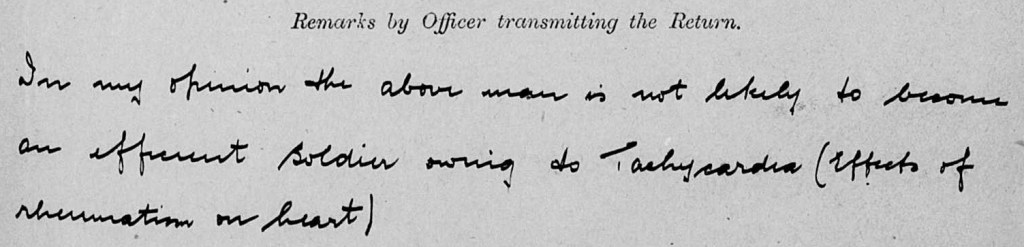 Remarks by Officer transmitting the Return.
In my opinion the above man is not likely to become
an efficient soldier owing to Tachycardia (Effects of
rheumatism on heart)